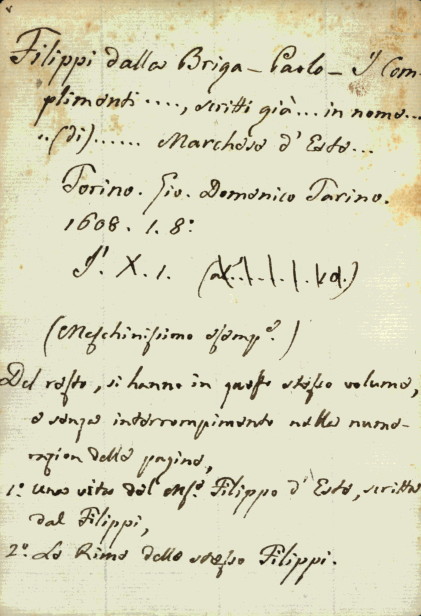 Filippi dalla Briga - Paolo - I Com-
plimenti ...., scritti già ... in nome...
..(di)...... Marchese d'Este...
Torino. Gio. Domenico Tarino.
1608. 1. 8:
X. 1.
(Meschinissimo esemp.e)
Del resto, si hanno in questo stesso volume,
e senza interrompimento nella nume-
razion delle pagine,
1.° Una vita del Filippo d'Este, scritta
dal Filippi,
2.° Le Rime dello stesso Filippi.